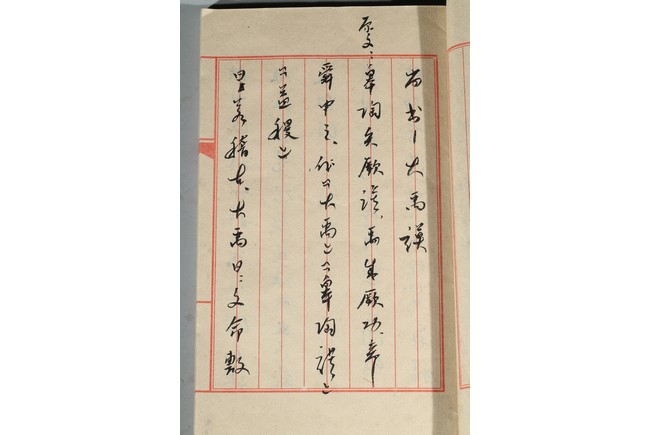 尚书—大禹谟
原文：皋陶矢厥谟，禹成厥功，帝
舜申之。作《大禹》《皋陶谟》
《益稷》
曰若稽古，大禹曰：文命敷